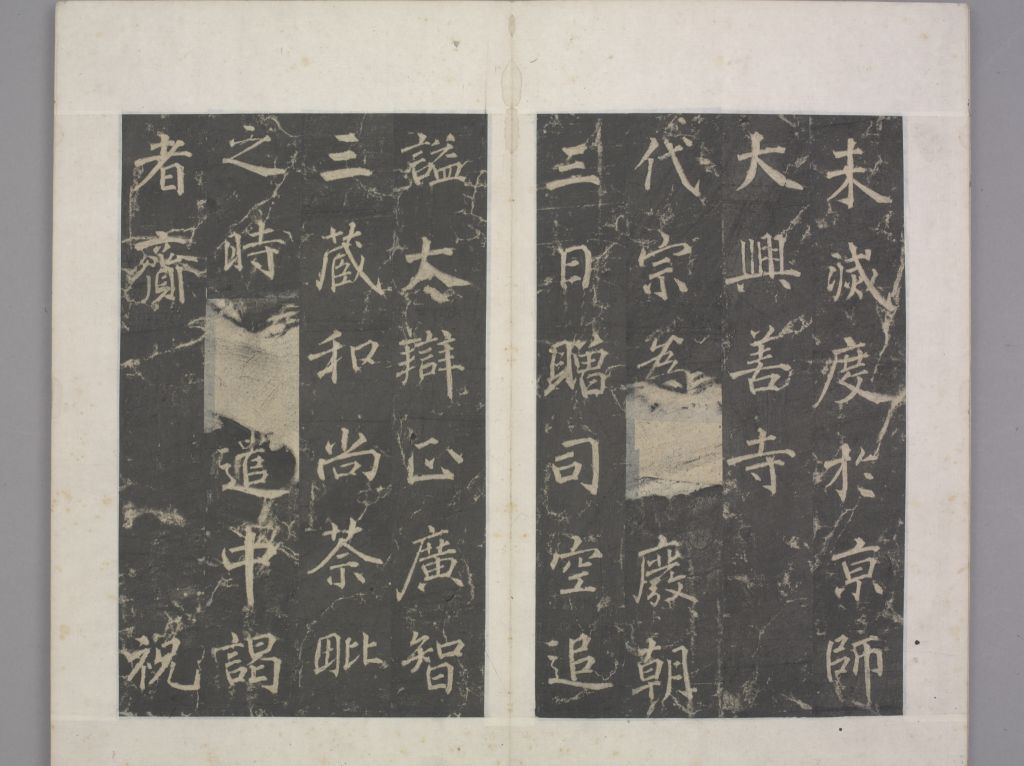 未滅度於京師
大興善寺
代宗為廢朝
三日贈司空追
謚大辯正廣智
三藏和尚荼毗
之時遣中謁
者齎祝